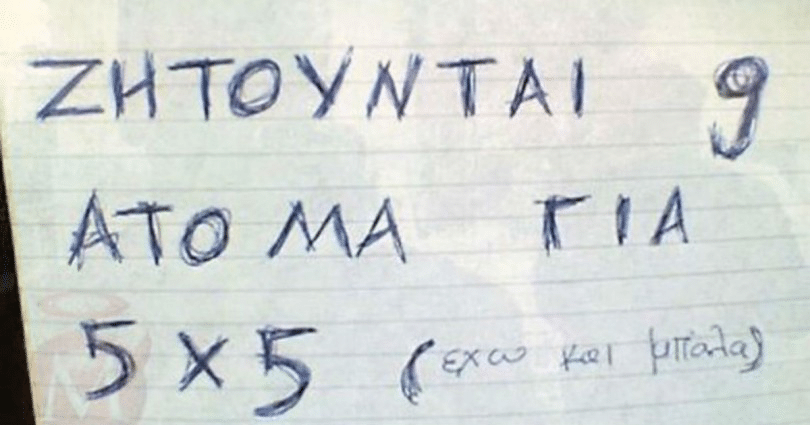 ΖΗΤΟΥΝΤΑΙ 9
ΑΤΟΜΑ ΓΙΑ
5 X 5 (εχω και μπαλα)